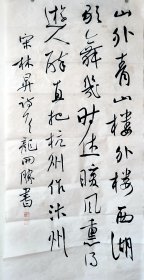 山外青山楼外楼西湖
歌舞幾时休暖风熏得
遊人醉直把杭州作汴州
宋林昇诗 龙 書